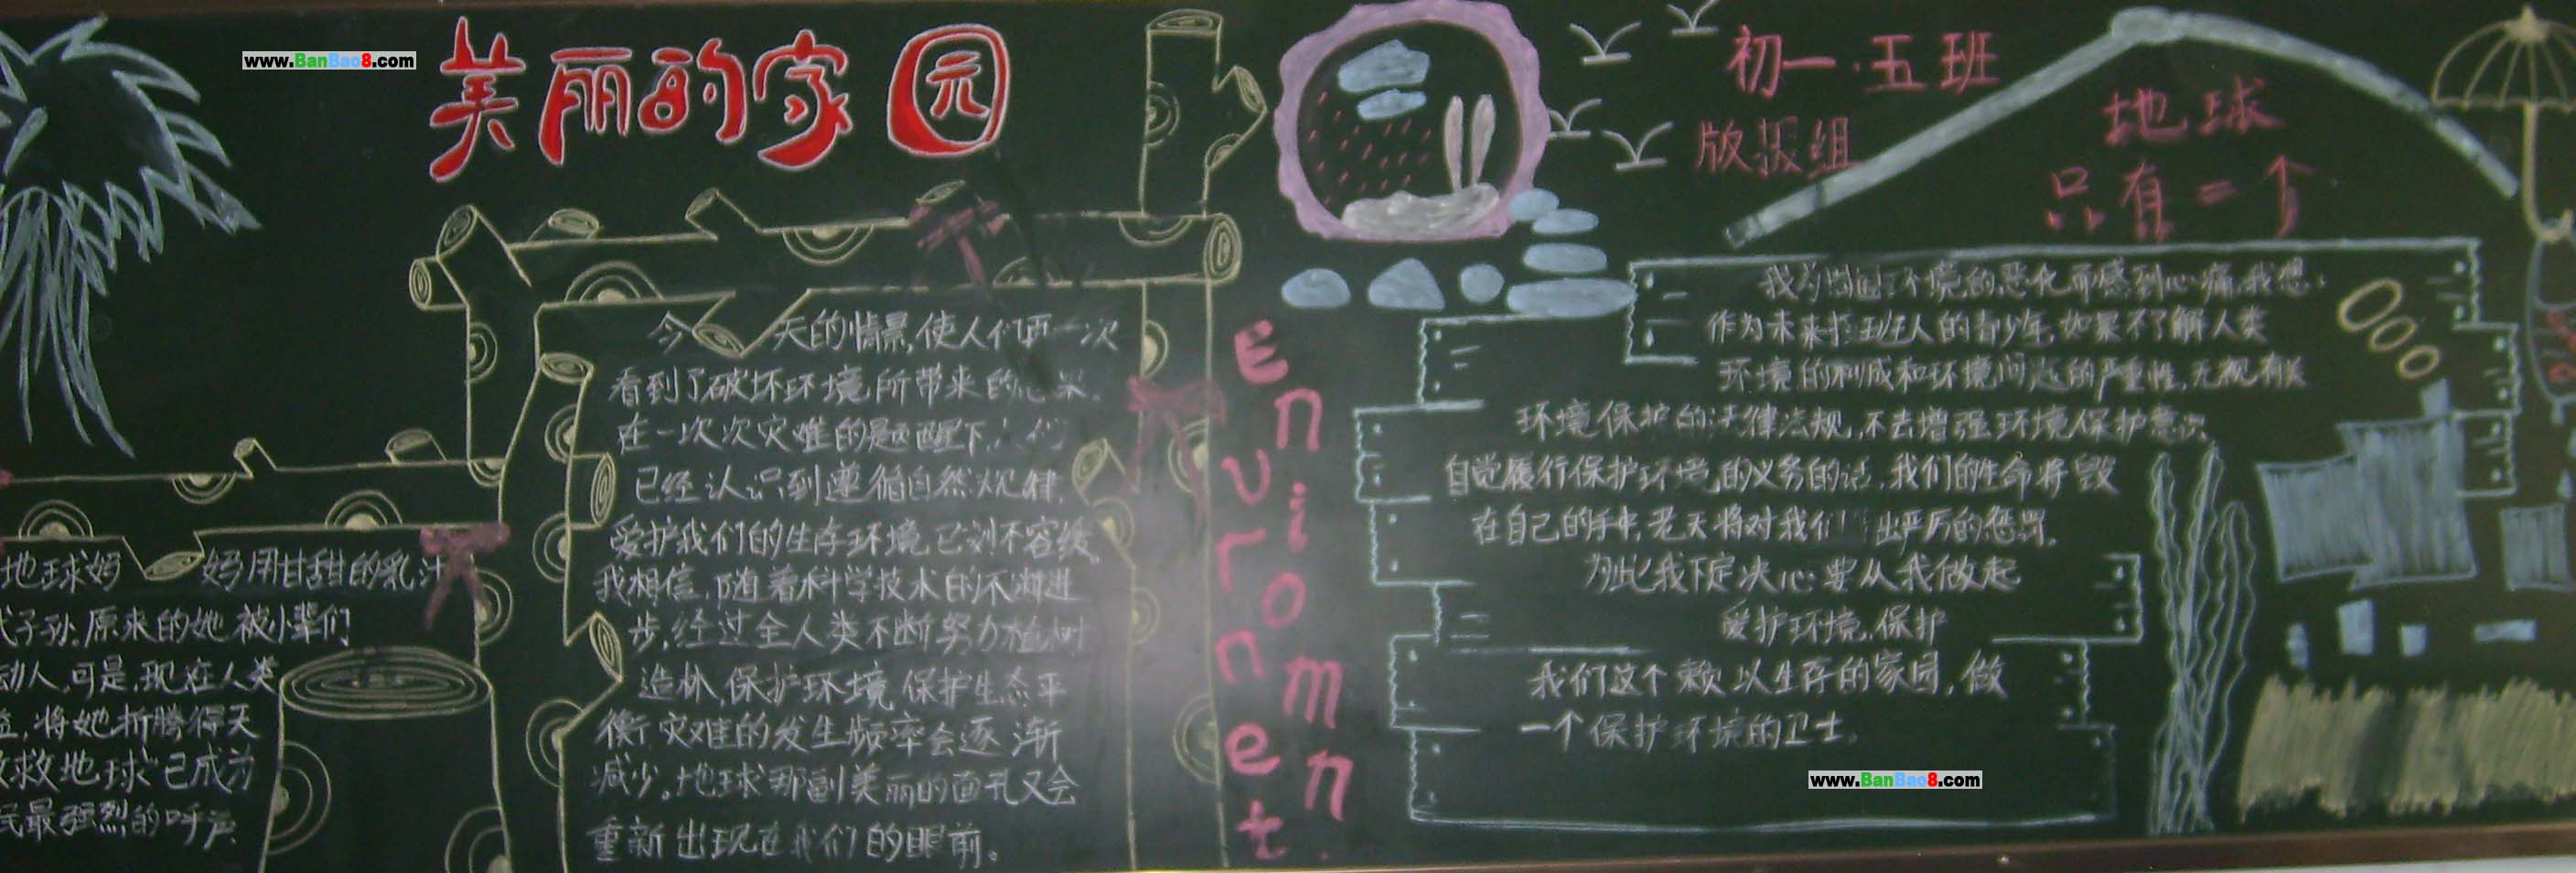 www.BanBao8.com
美丽的家园
地球妈妈用甘甜的乳汁
子孙,原来的她被小辈们
动人,可是,现在人类
将她折腾得天
救地球已成为
民最强烈的呼声
今天的情景,使人们再一次
看到了破坏环境所带来的恶果。
在一次次灾难的题醒下,人们
已经认识到遵循自然规律,
爱护我们的生存环境已刻不容缓。
我相信,随着科学技术的不断进
步,经过全人类不断努力植树
造林,保护环境,保护生态平
衡,灾难的发生频率会逐渐
减少。地球那副美丽的面孔又会
重新出现在我们的眼前。
Enviromn
Evrnnet.
初一·五班
版报组
地球
只有一个
环境的恶化而感到心痛,我想:
作为未来接班人的青少年,如果不了解人类
环境的构成和环境问题的严重性,无视有关
环境保护的法律法规,不去增强环境保护意识
自觉履行保护环境的义务的话,我们的生命将毁
在自己的手中,老天将对我们 出严厉的惩罚。
为此我下定决心要从我做起
爱护环境,保护
我们这个赖以生存的家园,做
一个保护环境的卫士。
www.BanBao8.com